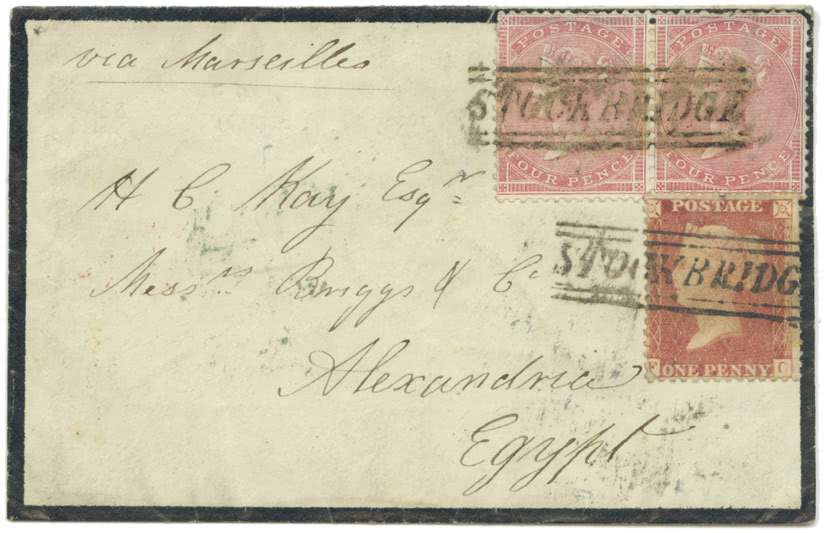 via Marseilles
POSTAGE POSTAGE
STOCKBRIDGE
FOUR PENCE FOUR PENCE
H C Kay Esqr
POSTAGE
STOCKBRIDG
Messrs Briggs & Co
ONE PENNY C
Alexandria
Egypt